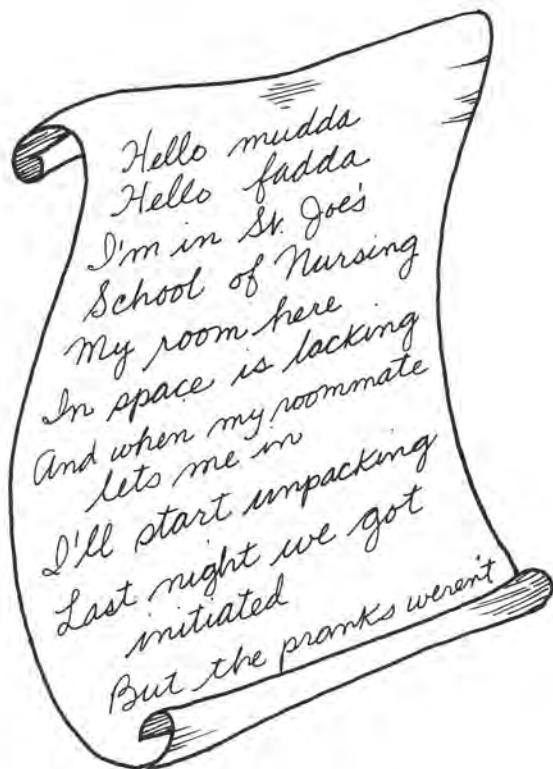 Hello mudda
Hello fadda
I'm in St. Joe's
School of Nursing
My room here
In space is lacking
And when my roommate
lets me in
I'll start unpacking
Last night we got
initiated
But the pranks weren't